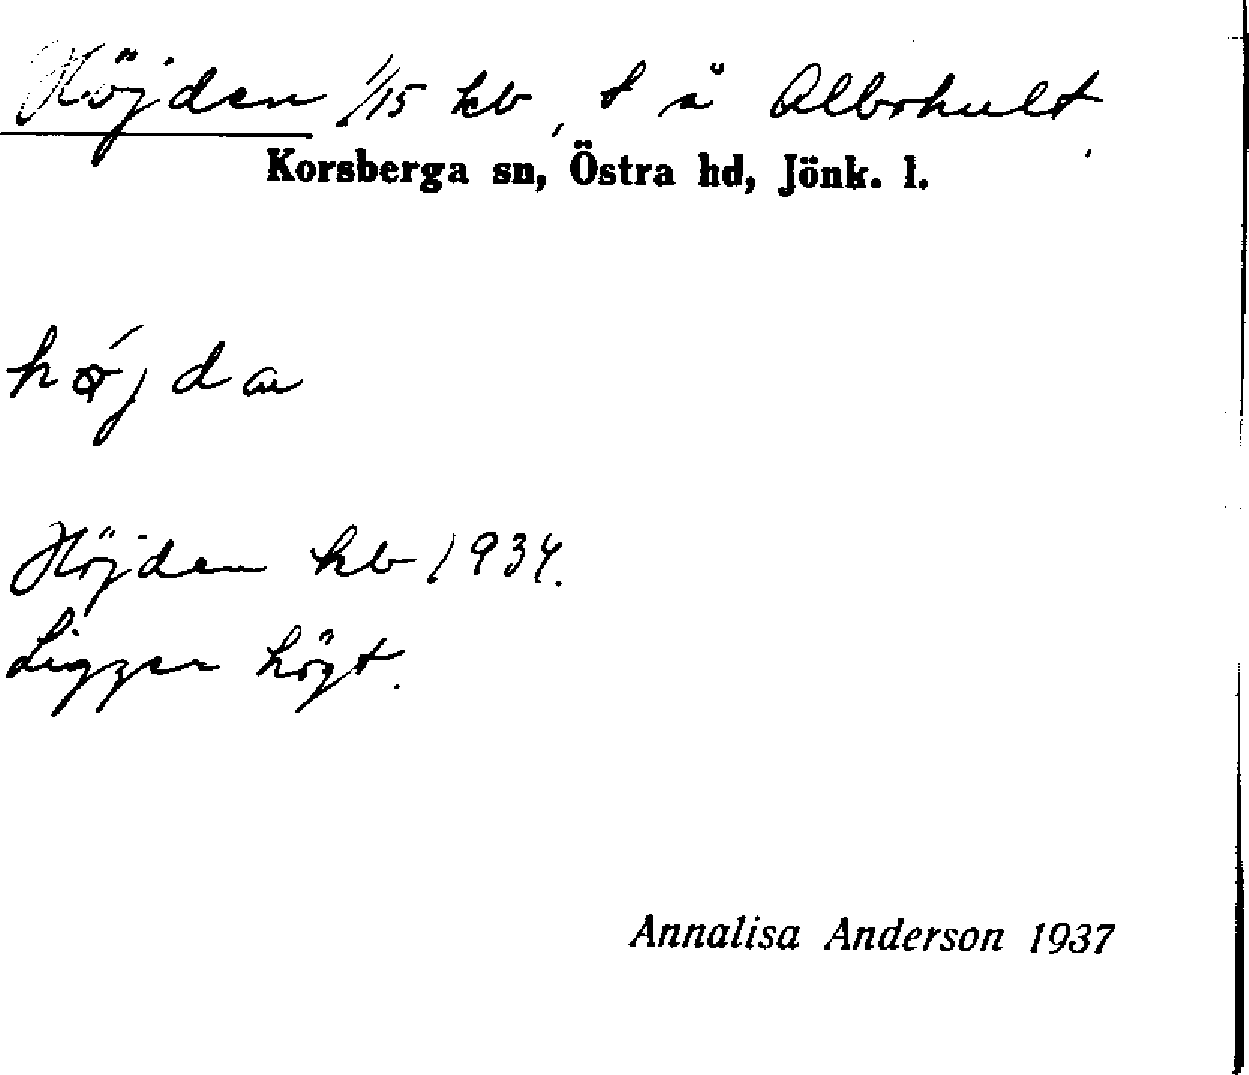 Höjden 1/15 hb, t å Albohult
Korsberga sn, Östra hd, Jönk. l.
Höjden hb 1934.
Ligger högt.
Annalisa Anderson 1937